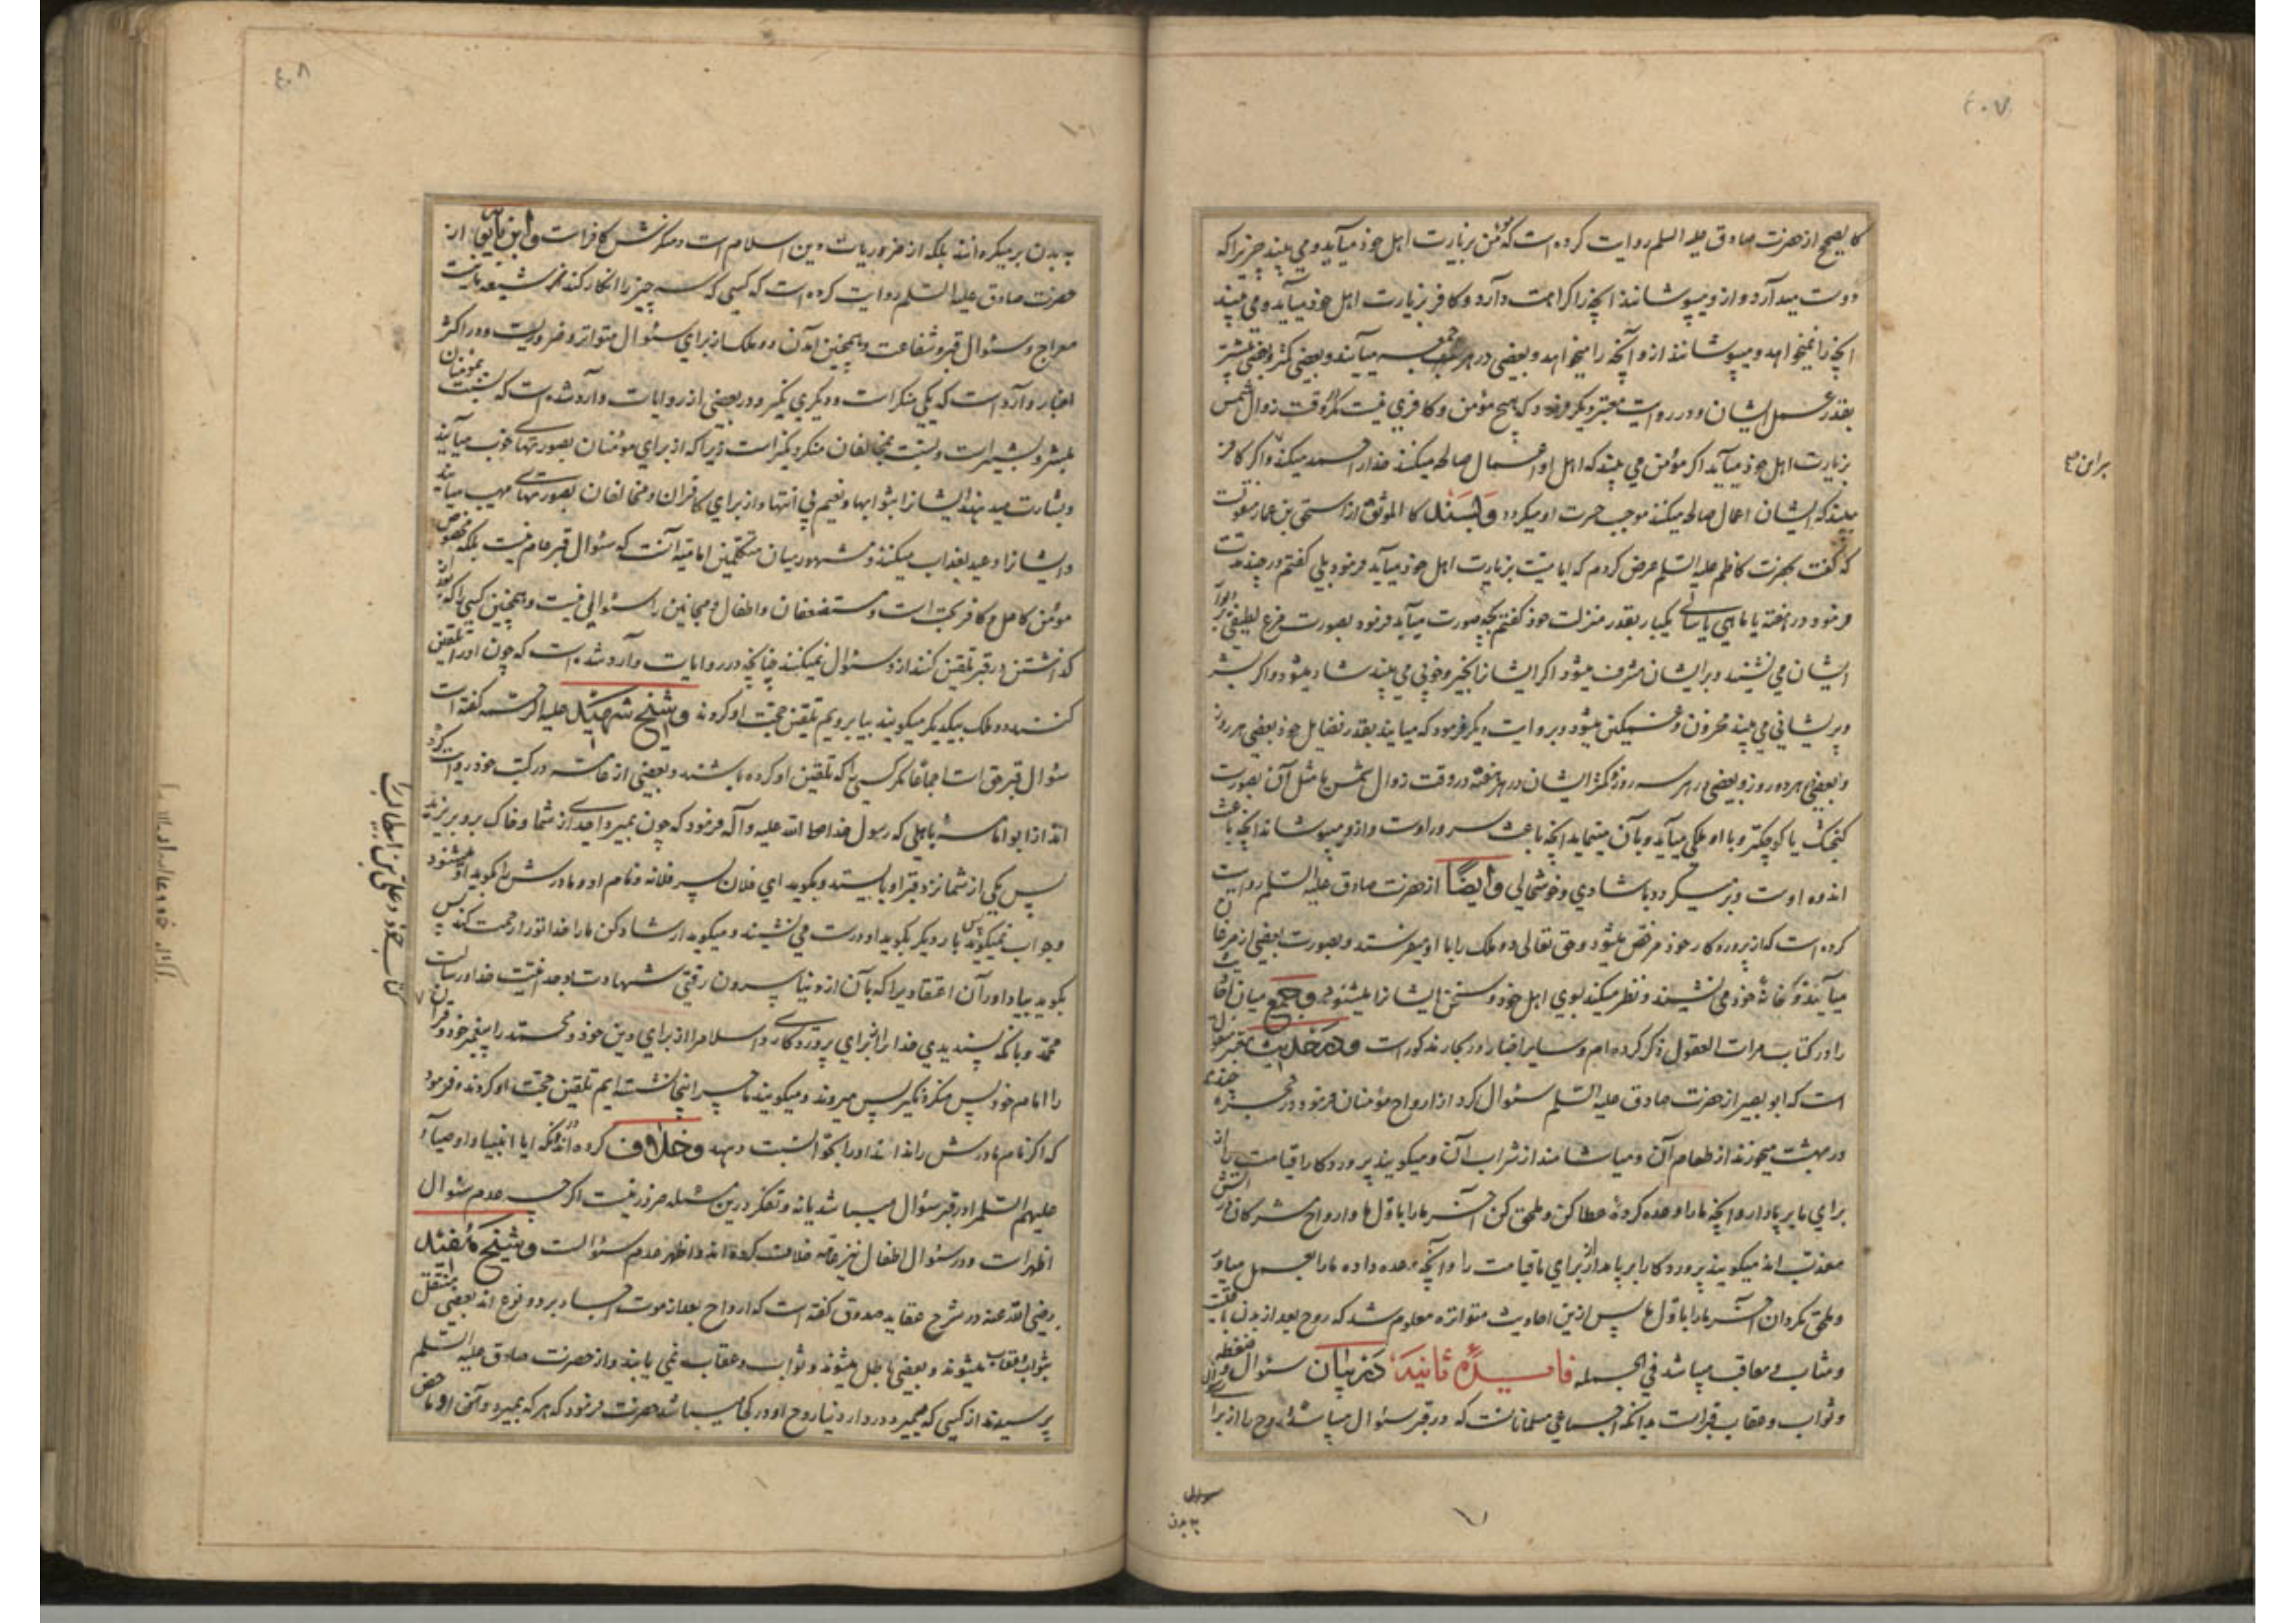 ٤٠٧
کالصحیح از حضرت صادق علیه السلم روایت کرده است که مؤمن بزیارت اهل خود میآید و می بیند چیزیرا که
دوست میدارد و ازو میپوشانند آنچه را کراهت دارد و کافر بزیارت اهل خود میآید و می بیند
آنچه را نمیخواهد و میپوشانند ازو آنچه را میخواهد و بعضی در هر جمعه میآیند و بعضی کمتر و بعضی بیشتر
بقدر عمل ایشان و در روایت معتبر دیگر فرمود که هیچ مؤمن و کافری نیست مگر وقت زوال شمس
بزیارت اهل خود میآید اگر مؤمن می بیند که اهل او اعمال صالحه میکنند خدا را حمد میکند و اگر کافر
ببیند که ایشان اعمال صالحه میکنند موجب حسرت او میگردد و بسند کالموثق از اسحق بن عمار منقولست
که گفت بحضرت کاظم علیه السلم عرض کردم که ایا میت بزیارت اهل خود میآید فرمود بلی گفتم در چند مدت
فرمود در هفته یا ماهی یا سالی یکبار بقدر منزلت خود گفتم بچه صورت میآید فرمود بصورت مرغ لطیفی بر دیوار
ایشان می نشیند و بر ایشان مشرف میشود اگر ایشانرا بخیر و خوبی می بیند شاد میشود و اگر بشر
و پریشانی می بیند محزون و غمگین میشود و بروایت دیگر فرمود که میایند بقدر فضایل خود بعضی هر روز
و بعضی هر دو روز و بعضی هر سه روز و کمتر ایشان در هر هفته در وقت زوال شمس یا مثل آن بصورت
گنجشک یا کوچکتر و با او ملکی میآید و بآن مینماید آنچه باعث سرور اوست و ازو میپوشاند آنچه باعث
اندوه اوست و بر میگردد با شادی و خوشحالی و ایضا از حضرت صادق علیه السلم روایت
کرده است که از پروردکار خود مرخص میشود و حق تعالی دو ملک را با او میفرستد و بصورت بعضی از مرغان
میآیند و بخانه خود می نشیند و نظر میکند بسوی اهل خود و سخن ایشانرا میشنود و جمع میان احادیث
را در کتاب مرات العقول ذکر کرده ام و سایر اخبار در بحار مذکور است و در حدیث معتبر منقول
است که ابو بصیر از حضرت صادق علیه السلم سئوال کرد از ارواح مؤمنان فرمود در حجره چندند
در بهشت میخورند از طعام آن و میاشامند از شراب آن و میگویند پروردکارا قیامت را از
برای ما بر پا دار و آنچه ما را وعده کرده عطا کن و ملحق کن آخر ما را باول ما و ارواح مشرکان در آتش
معذب اند میگویند پروردکارا بر پا مدار از برای ما قیامت را و آنچه وعده داده ما را بعمل میاور
و ملحق مگردان آخر ما را باول ما پس ازین احادیث متواتره معلوم شد که روح بعد از بدن باقیست
و مثاب و معاقب میباشد فی الجمله فایده ثانیه در بیان سئوال و ضغطه
و ثواب و عقاب قبر است بدانکه اجماعی مسلمانانست که در قبر سئوال میباشد و روح را از برای
سوال
به بدن
٤٠٨
به بدن بر میگردانند بلکه از ضروریات دین اسلام است و منکرش کافر است و ابن بابویه از
حضرت صادق علیه السلم روایت کرده است که کسی که سه چیز را انکار کند شیعه ما نیست
معراج و سئوال قبر و شفاعت و همچنین آمدن دو ملک از برای سئوال متواتر و ضروریست و در اکثر
اخبار وارد است که یکی منکر است و دیگری نکیر و در بعضی از روایات وارد شده است که نسبت بمؤمنان
مبشر و بشیر است و نسبت بمخالفان منکر و نکیر است زیرا که از برای مؤمنان بصورتهای خوب میآیند
و بشارت میدهند ایشانرا بثوابها و نعیم بی انتها و از برای کافران و مخالفان بصورتهای مهیب میآیند
و ایشانرا وعید بعذاب میکنند و مشهور میان متکلمین امامیه آنست که سئوال قبر عام نیست بلکه مخصوص
مؤمن کامل و کافر بحت است و مستضعفان و اطفال و مجانین را سئوالی نیست و همچنین کسی را که بعد از
گذاشتن در قبر تلقین کنند ازو سئوال نمیکنند چنانچه در روایات وارد شده است که چون او را تلقین
کنند دو ملک بیکدیگر میگویند بیا برویم تلقین حجت او کردند و شیخ شهید علیه الرحمه گفته است
سئوال قبر حق است اجماعا مگر کسی را که تلقین او کرده باشند و بعضی از عامه در کتب خود روایت کرده
اند از ابو امامه باهلی که رسول خدا صلی الله علیه و آله فرمود که چون بمیرد احدی از شما و خاک برو بریزند
پس یکی از شما نزد قبر او بایستد و بگوید ای فلان پسر فلانه و نام او و مادرش را بگوید او میشنود
و جواب نمیگوید پس بار دیگر بگوید او درست می نشیند و میگوید ارشاد کن ما را خدا تو را رحمت کند پس
بگوید بیاد اور آن اعتقادیرا که بآن از دنیا بیرون رفتی شهادت بوحدانیت خدا و رسالت
محمد و بانکه پسندیدی خدا را از برای پروردگاری و اسلام را از برای دین خود و محمد را پیغمبر خود و قرآن
را امام خود پس منکر و نکیر پس میروند و میگویند ما چرا اینجا نشسته ایم تلقین حجت او کردند و فرمود
که اگر نام مادرش را نداند او را بحوا نسبت دهد و خلاف کرده اند در آنکه ایا انبیا و اوصیا
علیهم السلم را در قبر سئوال میباشد یا نه و تفکر درین مسئله ضرور نیست اگر چه عدم سئوال
اظهر است و در سئوال اطفال نیز عامه خلاف کرده اند و اظهر عدم سئوالست و شیخ مفید
رضی الله عنه در شرح عقاید صدوق گفته است که ارواح بعد از موت اجساد بر دو نوع اند بعضی منتقل
بثواب و عقاب میشوند و بعضی باطل میشوند و ثواب و عقاب نمی یابند و از حضرت صادق علیه السلم
پرسیدند از کسی که بمیرد در دار دنیا روح او در کجا میباشد حضرت فرمود که هر که بمیرد و آن او ماحض
کتاب خود و علی بن ابیطالب را